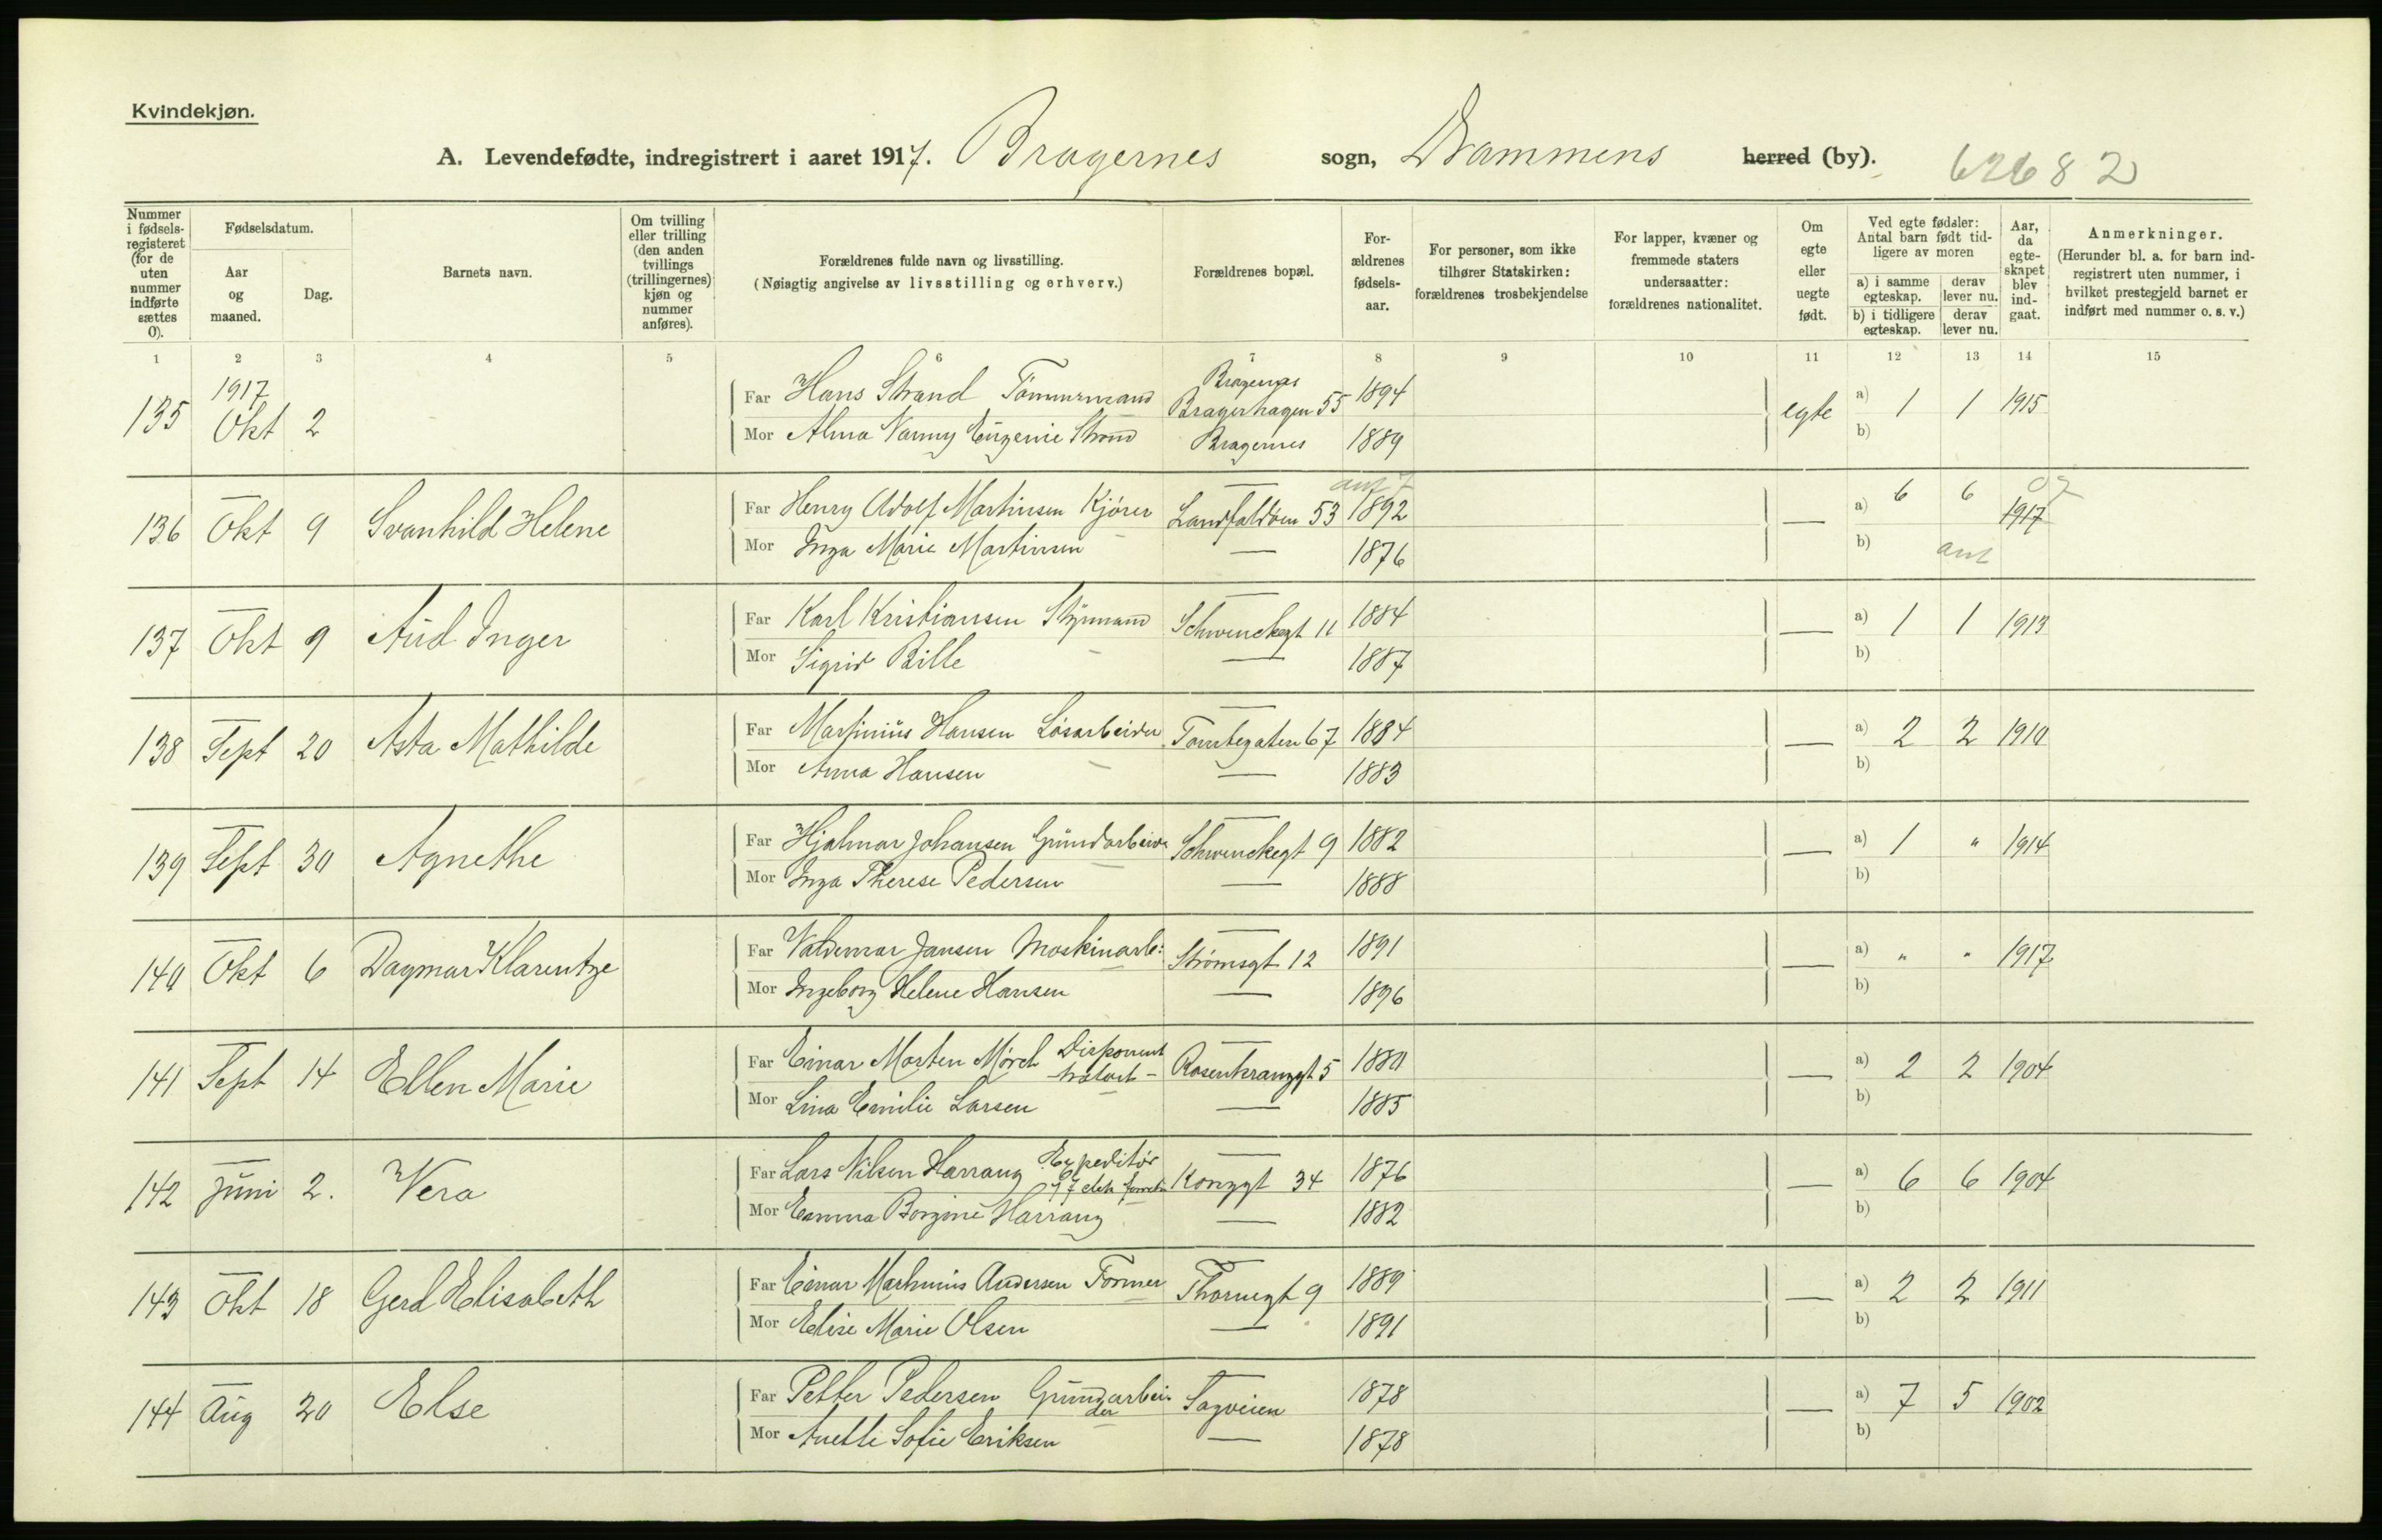 Kvindekjøn.
A. Levendefødte, indregistrert i aaret 1917. Bragernes sogn, Drammens herred (by). 62682
Nummer i fødselsregisteret (for de uten nummer indførte sættes 0).
Fødselsdatum.
Aar og maaned.
Dag.
Barnets navn.
Om tvilling eller trilling (den anden tvillings (trillingernes) kjøn og nummer anføres).
Forældrenes fulde navn og livsstilling.
(Nøiagtig angivelse av livsstilling og erhverv.)
Forældrenes bopæl.
Forældrenes fødselsaar.
For personer, som ikke tilhører Statskirken: forældrenes trosbekjendelse
For lapper, kvæner og fremmede staters undersaatter: forældrenes nationalitet.
Om egte eller uegte født.
Ved egte fødsler: Antal barn født tidligere av moren
a) i samme egteskap. derav lever nu.
b) i tidligere egteskap. derav lever nu.
Aar, da egteskapet blev indgaat.
Anmerkninger.
(Herunder bl. a. for barn indregistrert uten nummer, i hvilket prestegjeld barnet er indført med nummer o. s. v.)
1 2 3 4 5 6 7 8 9 10 11 12 13 14 15
1917 Bragernes
135 Okt 2 Far Hans Strand Tømmermand Bragerhagen 55 1894 egte a) 1 1 1915
Mor Alma Nanny Eugenie Strand Bragernes 1889 b)
136 Okt 9 Svanhild Helene Far Henry Adolf Martinsen Kjører Landfaldøen 53 1892 — a) 6 6 1917
Mor Inga Marie Martinsen — 1876 b) ant
137 Okt 9 Aud Inger Far Karl Kristiansen Styrmand Schwenckegt 11 1884 — a) 1 1 1913
Mor Sigrid Bille — 1887 b)
138 Sept 20 Asta Mathilde Far Martinius Hansen Løsarbeider Tomtegaten 67 1884 — a) 2 2 1910
Mor Anna Hansen — 1883 b)
139 Sept 30 Agnethe Far Hjalmar Johansen Grundarbeider Schwenckegt 9 1882 — a) 1 " 1914
Mor Inga Therese Pedersen — 1888 b)
140 Okt 6 Dagmar Klarentze Far Valdemar Jansen Maskinarb: Strømsgt 12 1891 — a) " " 1917
Mor Ingeborg Helene Hansen — 1896 b)
141 Sept 14 Ellen Marie Far Einar Morten Mørch Disponent Rosenkranzgt 5 1880 — a) 2 2 1904
Mor Lina Emilie Larsen — 1885 b)
142 Juni 2. Vera Far Lars Nilsen Harrang Expeditør Konggt 34 1876 — a) 6 6 1904
Mor Emma Borgine Harrang — 1882 b)
143 Okt 18 Gerd Elisabeth Far Einar Marhinius Andersen Former Thornegt 9 1889 — a) 2 2 1911
Mor Elise Marie Olsen — 1891 b)
144 Aug 20 Else Far Petter Pedersen Grundarbeider Sagveien 1878 — a) 7 5 1902
Mor Anetti Sofie Eriksen — 1878 b)